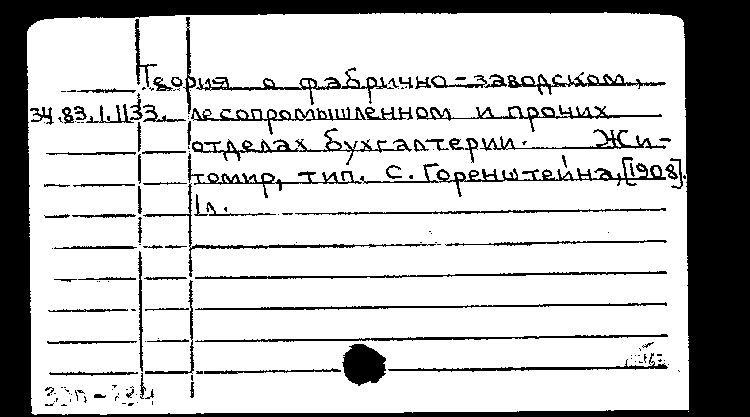 Теория о фабрично-заводском,
34.83.1.1133. лесопромышленном и прочих
отделах бухгалтерии. Жи-
томир, тип. С. Горенштейна, [1908].
1л.